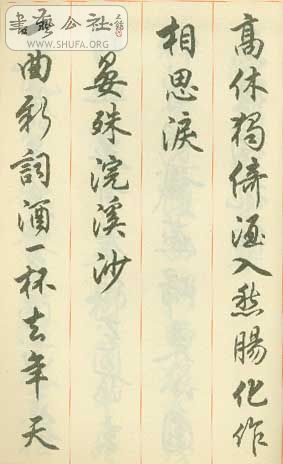 高休独倚酒入愁腸化作
相思淚
晏殊浣溪沙
曲新詞酒一杯去年天
書藝公社
WWW.SHUFA.ORG